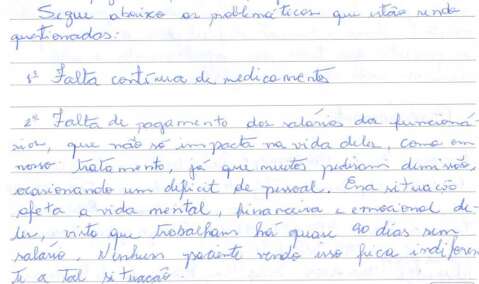 Segue abaixo os problemáticos que estão sendo
questionados:
1º Falta contínua de medicamentos
2º Falta de pagamento dos salários dos funcioná-
rios, que não só impacta na vida deles, como em
nosso tratamento, já que muitos pediram demissão,
ocasionando um deficit de pessoal. Essa situação
afeta a vida mental, financeira e emocional de-
les, visto que trabalham há quase 90 dias sem
salário. Nenhum paciente vendo isso fica indiferen-
te a tal situação.